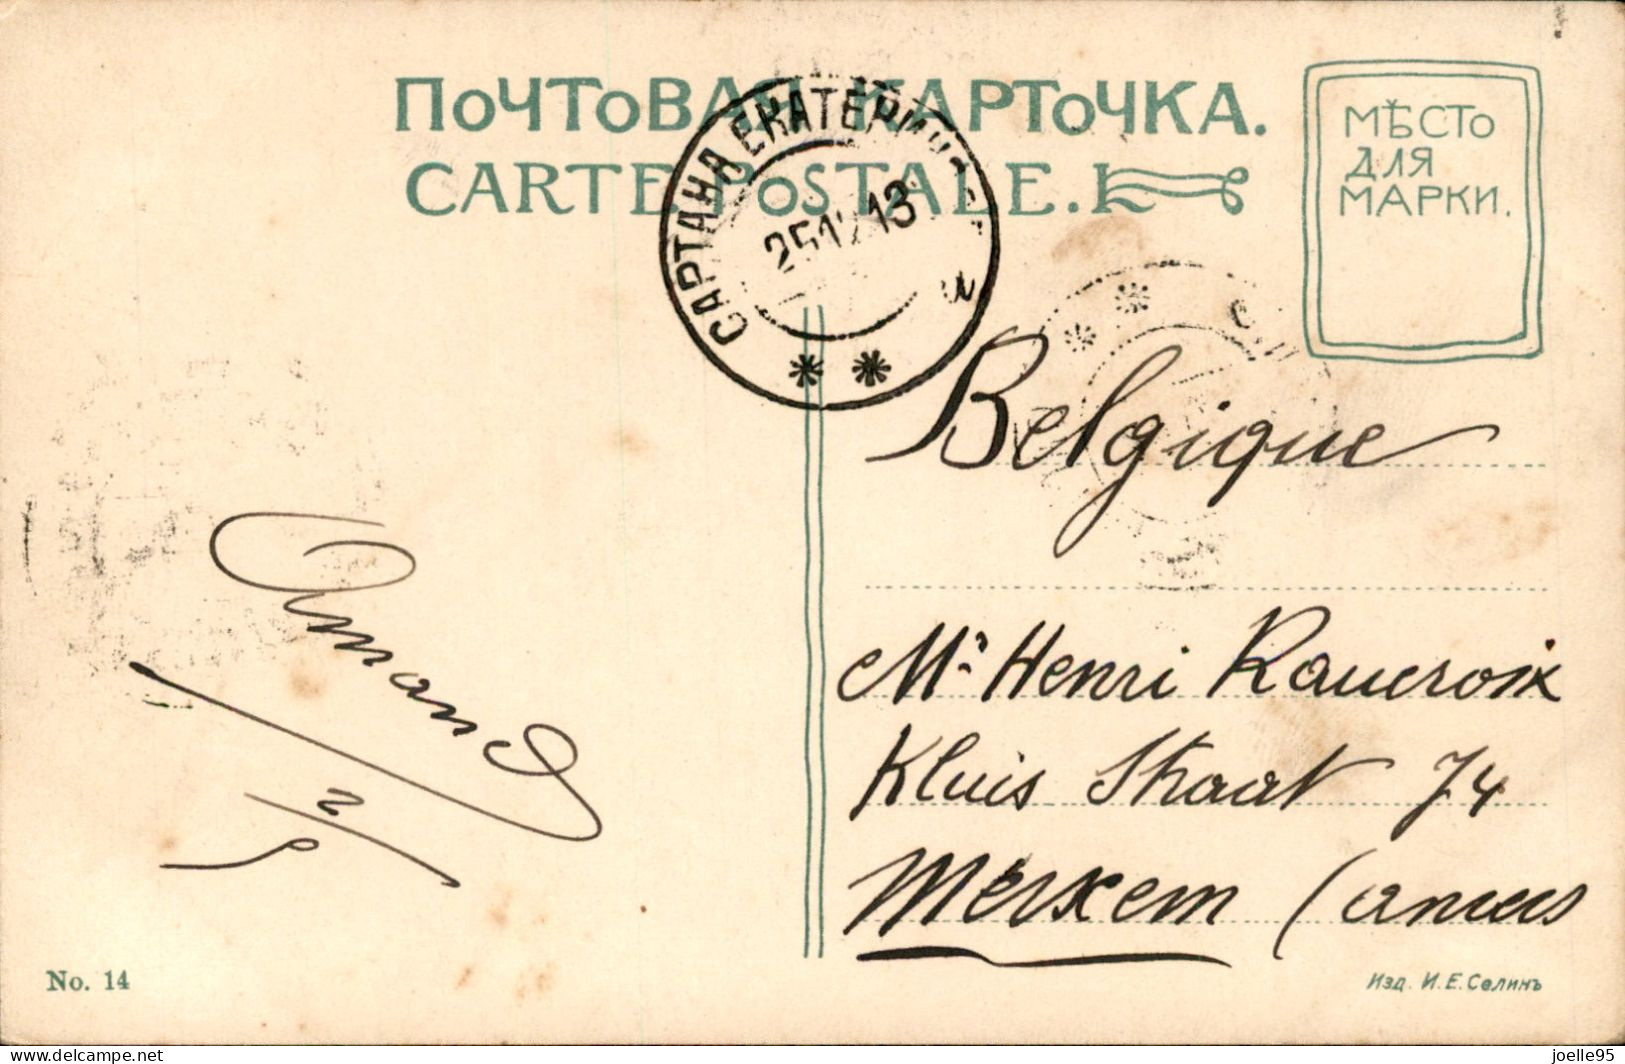 ПОЧТОВАЯ КАРТОЧКА.
CARTE POSTALE.
МѢСТО
ДЛЯ
МАРКИ.
САРТАНА ЕКАТЕРИНОСЛ
25 12 13
Belgique
Mr Henri Raucroix
Kluis Straat 74
Merxem (anvers
No. 14
Изд. И. Е. Селинъ
joelle95